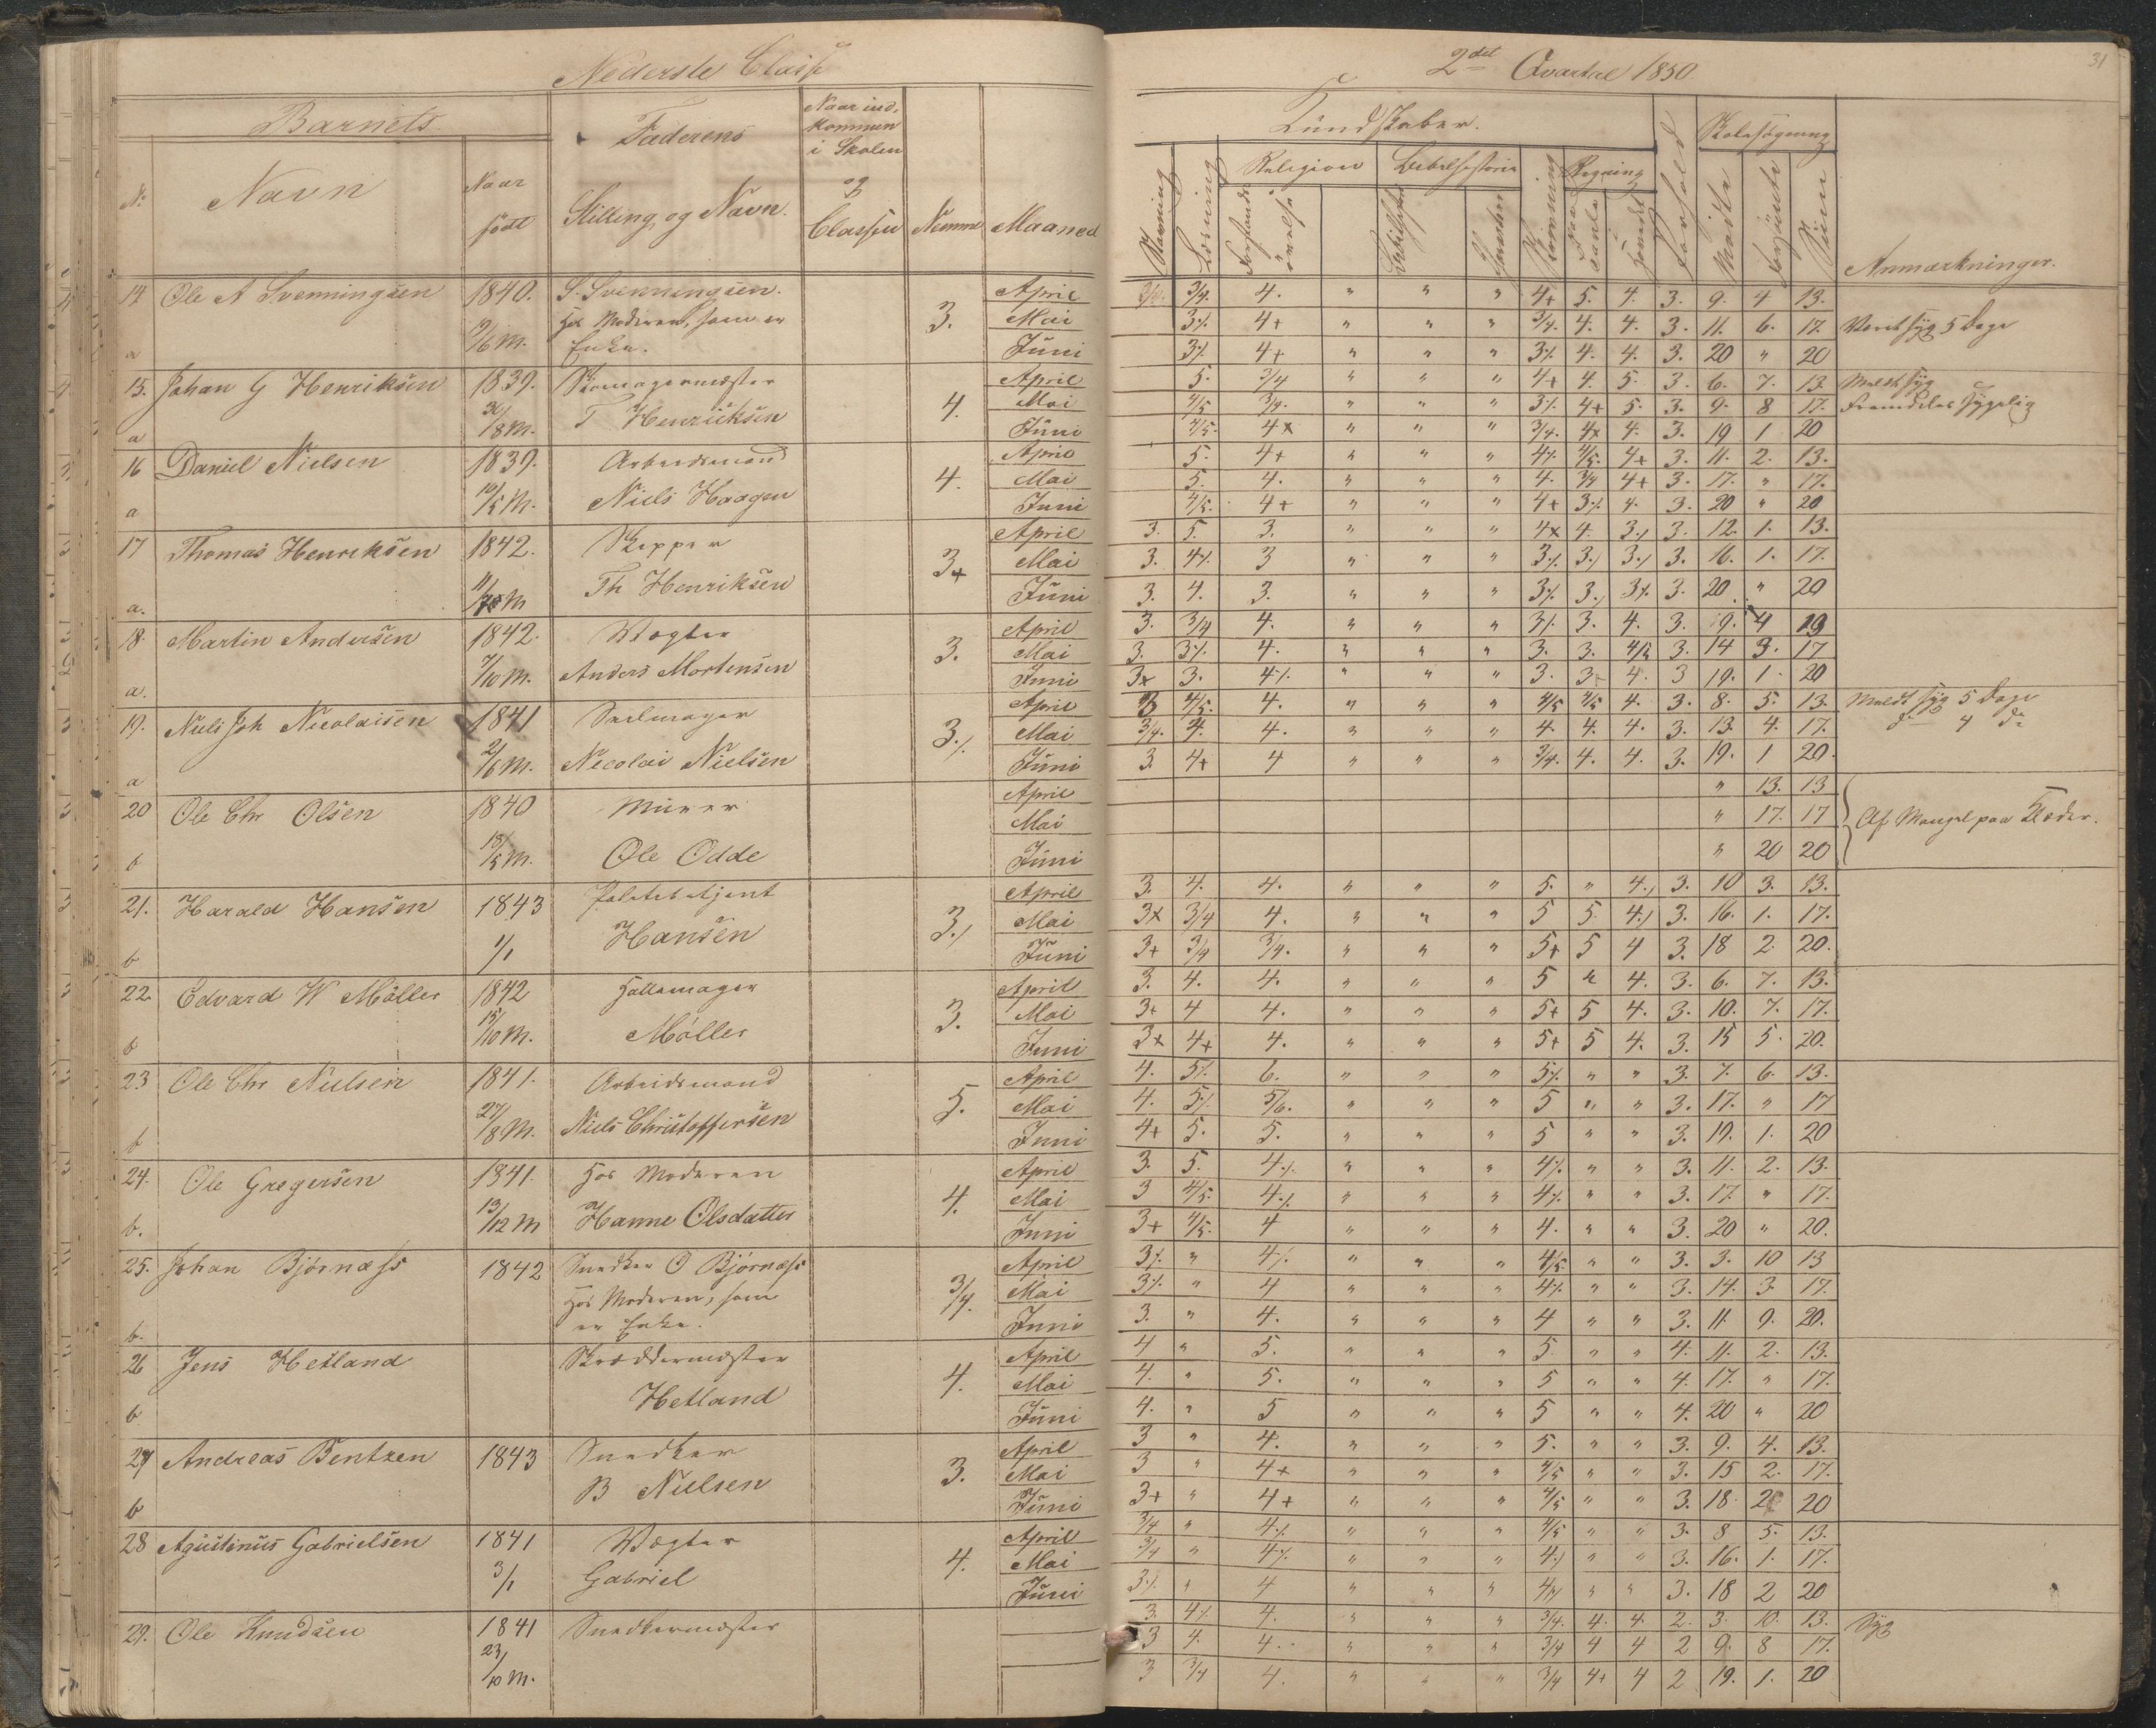 Nederste Classe
2det Qvartal 1850.
31
Barnets
Faderens
Naar ind-
kommen
i Skolen
og
Classen
Kundskaber.
Skolesøgning
Nr Navn Naar født Stilling og Navn. Nemme Maaned
Stavning Læsning Religion Bibelhistorie Skrivning Regning Forhold Mødte Forsømte Anmærkninger.
14 Ole A Svenningsen 1840. S. Svenningsen. April 3/4. 4. " " " 4+ 5. 4. 3. 9. 4 13.
9/6 M. Hos Moderen, som er 3. Mai 3% 4+ " " " 3/4. 4. 4. 3. 11. 6. 17. Været syg 5 Dage
a Enke. Juni 3% 4+ " " " 3% 4. 4. 3. 20 " 20
15. Johan G Henriksen 1839. Skomagermester April 5. 3/4 " " " 4+ 4. 5. 3. 6. 7. 13. Meldt syg
30/8 M. T Henriksen 4. Mai 4/5 3/4. " " " 3% 4+ 5. 3. 9. 8 17. Fremdeles sygelig
a Juni 4/5. 4x " " " 3/4. 4x 4. 3. 19 1 20
16 Daniel Nielsen 1839. Arbeidsmand April 5. 4+ " " " 4% 4/5. 4+ 3. 11. 2. 13.
10/5 M. Niels Haagen 4. Mai 5. 4. " " " 4. 3/4 4+ 3. 17. " 17.
a Juni 4/5. 4+ " " " 4+ 3% 4. 3. 20 " 20
17 Thomas Henriksen 1842. Skipper April 3. 5. 3. " " " 4x 4. 3% 3. 12. 1. 13.
Th Henriksen 3+ Mai 3. 4% 3 " " " 3% 3% 3% 3. 16. 1. 17.
a. Juni 3. 4. 3. " " " 3% 3% 3% 3. 20 " 20
18. Martin Andersen 1842. Vægter April 3. 3/4 4. " " " 3% 3. 4. 3. 9. 4 13
7/10 M. Anders Mortensen 3. Mai 3. 3% 4. " " " 3. 3. 4/5 3. 14 3. 17
a. Juni 3+ 3. 4% " " " 3. 3+ 4. 3 19. 1. 20
19. Niels Joh Nicolaisen 1841 Seilmager April 3 4/5. 4. " " " 4/5 4/5 4. 3. 8. 5. 13. Meldt syg 5 Dage
2/6 M. Nicolai Nielsen 3% Mai 3/4. 4. 4. " " " 4. 4. 4. 3. 13. 4. 17. do 4 do
a Juni 3. 4+ 4 " " " 3/4. 4. 4. 3. 19. 1 20.
20 Ole Chr Olsen 1840 Murer April " 13. 13
18/5 M. Ole Odde Mai " 17. 17 Af Mangel paa Klæder.
b Juni " 20 20
21. Harald Hansen 1843 Politibetjent April 3. 4. 4. " " " 5. " 4% 3. 10 3. 13.
1/1 Hansen 3% Mai 3x 3/4 4. " " " 5 5. 4% 3. 16. 1. 17.
b Juni 3+ 3/4 3/4. " " " 5+ 5 4 3. 18 2. 20.
22. Edvard W Möller 1842 Hattemager April 3. 4. 4. " " " 5 " 4. 3. 6. 7. 13.
15/10 M. Möller 3. Mai 3+ 4 4. " " " 5+ 5 4. 3. 10. 7. 17.
b Juni 3x 4+ 4. " " " 5+ 5 4. 3. 15 5. 20.
23 Ole Chr Nielsen 1841. Arbeidsmand April 4. 5% 6. " " " 5% " " 3. 7. 6. 13.
27/8 M. Niels Christoffersen 5. Mai 4. 5% 5/6. " " " 5 " " 3. 17. " 17
b Juni 4+ 5. 5. " " " 5 " " 3. 19. 1. 20
24. Ole Gregersen 1841. Hos Moderen April 3. 5. 4% " " " 4% " " 3. 11. 2. 13.
13/12 M Hanne Olsdatter 4. Mai 3 4/5. 4% " " " 4% " " 3. 17. " 17.
b. Juni 3+ 4/5. 4 " " " 4. " " 3. 20 " 20.
25. Johan Bjørnæss 1842 Snedker O Bjørnæss April 3% " 4% " " " 4/5. " " 3. 3. 10 13
Hos Moderen, som 3/4. Mai 3% " 4 " " " 4% " " 3. 14. 3. 17.
b. er Enke. Juni 3. " 4. " " " 4 " " 3. 11. 9. 20.
26 Jens Hetland Skræddermester April 4 " 5. " " " 5. " " 4. 11. 2. 13.
Hetland 4. Mai 4. " 5. " " " 5 " " 4. 17. " 17.
b Juni 4. " 5 " " " 5 " " 4. 20 " 20
27 Andreas Bentzen 1843 Snedker April 3 " 4. " " " 5. " " 3. 9. 4. 13.
B Nielsen 3. Mai 3 " 4+ " " " 4/5 " " 3. 15 2. 17.
b Juni 3+ " 4+ " " " 4/5 " " 3. 18. 2 20
28 Agustinus Gabrielsen 1841 Vægter April 3/4 " 4% " " " 4/5 " " 3. 8 5. 13.
3/1 Gabriel 4. Mai 3/4 " 4% " " " 4% " " 3. 16. 1. 17.
Juni 3% " 4 " " " " " 3. 18 2 20
29. Ole Knudsen 1841 Snedkermester 3. 4% 4. " " " 3/4. 4. 4. 2. 3. 10. 13. Syg
23/10 M. 3 4. 4. " " " 3/4 4 4 2 9. 8 17.
3 3/4 4. " " " 3/4 4+ 4 2 19. 1. 20